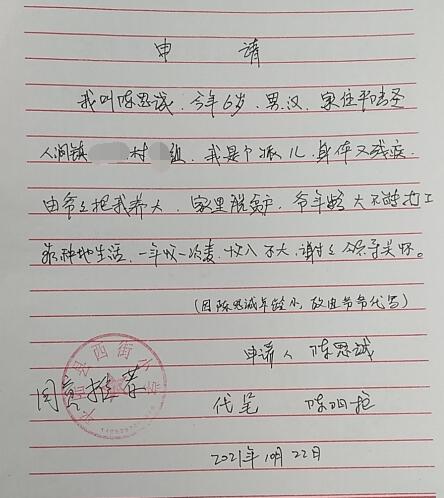 申 请
我叫陈思诚、今年6岁、男、汉、家住平陆圣
人涧镇 村 组、我是个孤儿、身体又残疾、
由爷爷把我养大、家里脱贫户、爷年龄大不能打工
靠种地生活、一年收一次麦、收入不大、谢谢领导关怀。
(因陈思诚年轻小,故由爷爷代写)
申请人 陈思诚
同意推荐
县西街小
代笔 陈
2021年10月22日